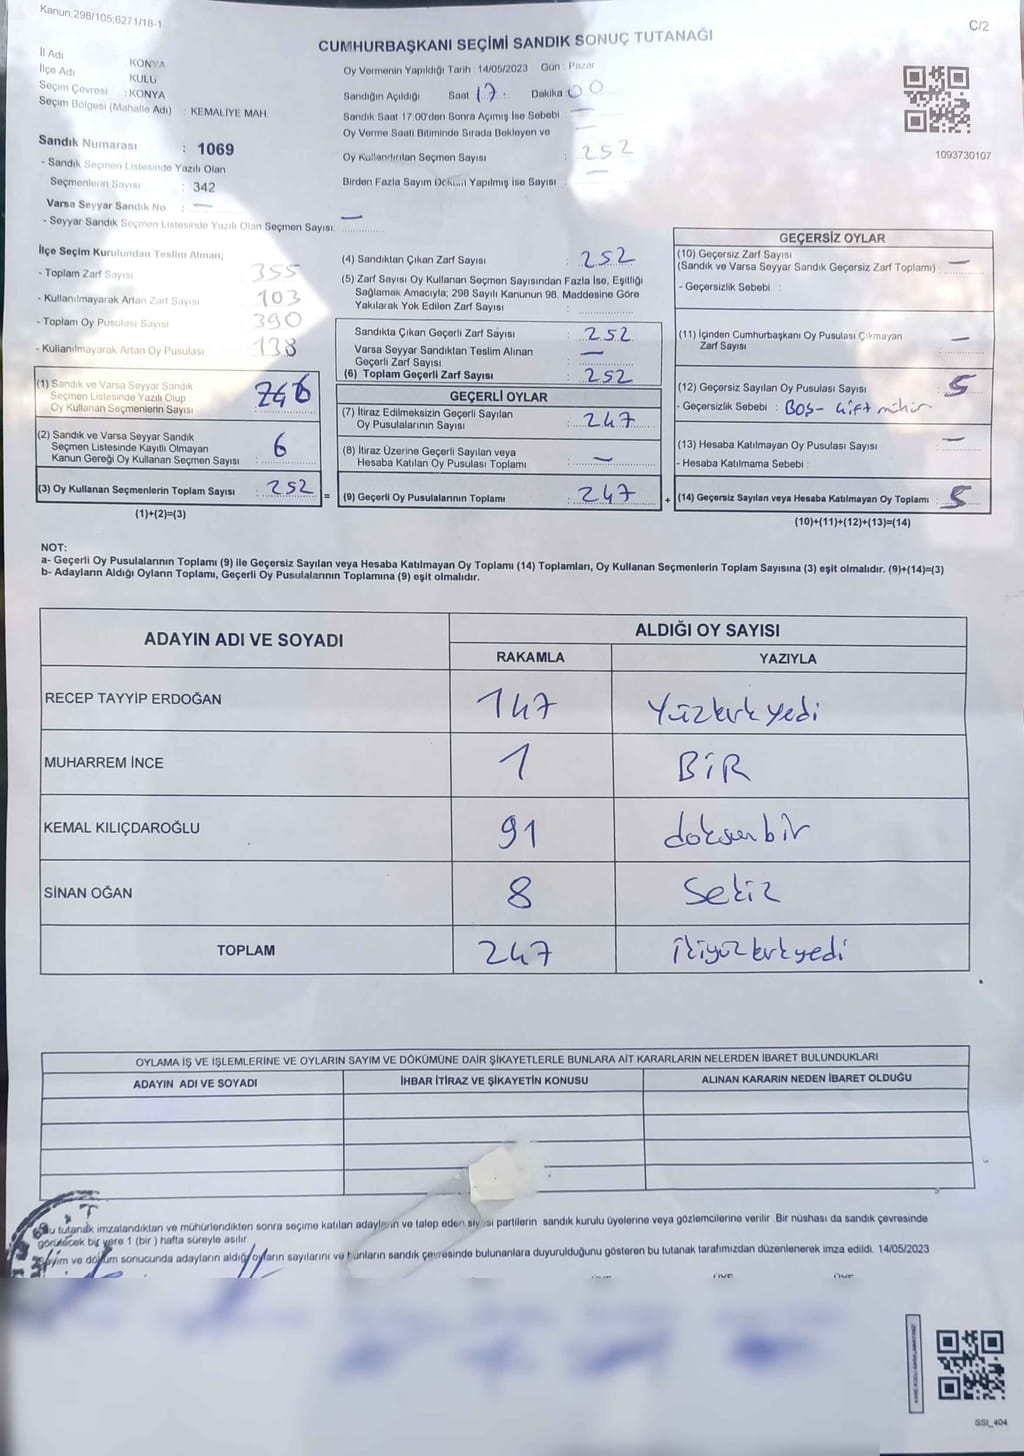 Kanun,298/105;6271/18-1
C/2
CUMHURBAŞKANI SEÇİMİ SANDIK SONUÇ TUTANAĞI
İl Adı KONYA
İlçe Adı KULU
Seçim Çevresi : KONYA
Seçim Bölgesi (Mahalle Adı) : KEMALİYE MAH
Sandık Numarası : 1069
- Sandık Seçmen Listesinde Yazılı Olan
Seçmenlerin Sayısı : 342
Varsa Seyyar Sandık No : —
- Seyyar Sandık Seçmen Listesinde Yazılı Olan Seçmen Sayısı: —
Oy Vermenin Yapıldığı Tarih : 14/05/2023 Gün : Pazar
Sandığın Açıldığı Saat 17 : Dakika 00
Sandık Saat 17:00'den Sonra Açımış İse Sebebi : —
Oy Verme Saati Bitiminde Sırada Bekleyen ve : —
Oy Kullandırılan Seçmen Sayısı : 252
Birden Fazla Sayım Döküm Yapılmış İse Sayısı : —
1093730107
İlçe Seçim Kurulundan Teslim Alınan;
- Toplam Zarf Sayısı 355
- Kullanılmayarak Artan Zarf Sayısı 103
- Toplam Oy Pusulası Sayısı 390
- Kullanılmayarak Artan Oy Pusulası 138
(1) Sandık ve Varsa Seyyar Sandık
Seçmen Listesinde Yazılı Olup
Oy Kullanan Seçmenlerin Sayısı 246
(2) Sandık ve Varsa Seyyar Sandık
Seçmen Listesinde Kayıtlı Olmayan
Kanun Gereği Oy Kullanan Seçmen Sayısı : 6
(3) Oy Kullanan Seçmenlerin Toplam Sayısı : 252
(1)+(2)=(3)
=
(4) Sandıktan Çıkan Zarf Sayısı : 252
(5) Zarf Sayısı Oy Kullanan Seçmen Sayısından Fazla İse, Eşitliği
Sağlamak Amacıyla; 298 Sayılı Kanunun 98. Maddesine Göre
Yakılarak Yok Edilen Zarf Sayısı :
Sandıkta Çıkan Geçerli Zarf Sayısı : 252
Varsa Seyyar Sandıktan Teslim Alınan
Geçerli Zarf Sayısı : —
(6) Toplam Geçerli Zarf Sayısı : 252
GEÇERLİ OYLAR
(7) İtiraz Edilmeksizin Geçerli Sayılan
Oy Pusulalarının Sayısı : 247
(8) İtiraz Üzerine Geçerli Sayılan veya
Hesaba Katılan Oy Pusulası Toplamı : —
(9) Geçerli Oy Pusulalarının Toplamı : 247
+
GEÇERSİZ OYLAR
(10) Geçersiz Zarf Sayısı
(Sandık ve Varsa Seyyar Sandık Geçersiz Zarf Toplamı) : —
- Geçersizlik Sebebi :
(11) İçinden Cumhurbaşkanı Oy Pusulası Çıkmayan
Zarf Sayısı : —
(12) Geçersiz Sayılan Oy Pusulası Sayısı : 5
- Geçersizlik Sebebi : BOŞ- Çift mühür
(13) Hesaba Katılmayan Oy Pusulası Sayısı : —
- Hesaba Katılmama Sebebi :
(14) Geçersiz Sayılan veya Hesaba Katılmayan Oy Toplamı : 5
(10)+(11)+(12)+(13)=(14)
NOT:
a- Geçerli Oy Pusulalarının Toplamı (9) ile Geçersiz Sayılan veya Hesaba Katılmayan Oy Toplamı (14) Toplamları, Oy Kullanan Seçmenlerin Toplam Sayısına (3) eşit olmalıdır. (9)+(14)=(3)
b- Adayların Aldığı Oyların Toplamı, Geçerli Oy Pusulalarının Toplamına (9) eşit olmalıdır.
ADAYIN ADI VE SOYADI
ALDIĞI OY SAYISI
RAKAMLA YAZIYLA
RECEP TAYYİP ERDOĞAN 147 Yüzkırk yedi
MUHARREM İNCE 1 BİR
KEMAL KILIÇDAROĞLU 91 doksan bir
SİNAN OĞAN 8 Sekiz
TOPLAM 247 ikiyüz kırkyedi
OYLAMA İŞ VE İŞLEMLERİNE VE OYLARIN SAYIM VE DÖKÜMÜNE DAİR ŞİKAYETLERLE BUNLARA AİT KARARLARIN NELERDEN İBARET BULUNDUKLARI
ADAYIN ADI VE SOYADI İHBAR İTİRAZ VE ŞİKAYETİN KONUSU ALINAN KARARIN NEDEN İBARET OLDUĞU
Bu tutanak imzalandıktan ve mühürlendikten sonra seçime katılan adayların ve talep eden siyasi partilerin sandık kurulu üyelerine veya gözlemcilerine verilir. Bir nüshası da sandık çevresinde
görülecek bir yere 1 (bir) hafta süreyle asılır.
Sayım ve döküm sonucunda adayların aldığı oyların sayılarını ve bunların sandık çevresinde bulunanlara duyurulduğunu gösteren bu tutanak tarafımızdan düzenlenerek imza edildi. 14/05/2023
ÜYE ÜYE ÜYE
SSI_404